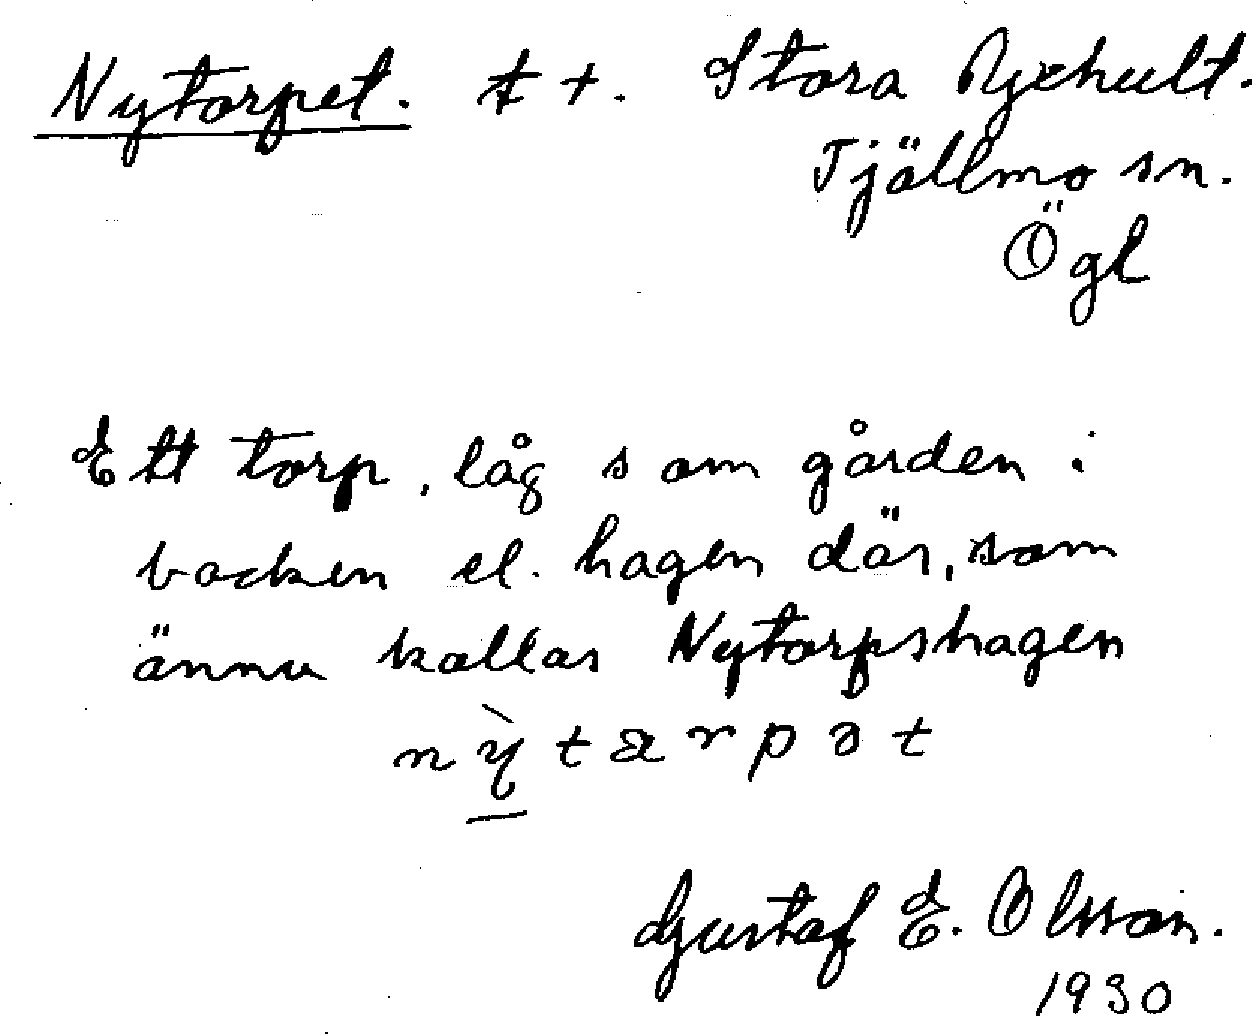 Nytorpet. t +. Stora Djehult.
Tjällmo sn.
Ögl
Ett torp, låg s om gården i
backen el. hagen där, som
ännu kallas Nytorpshagen
nỳtarpət
Gustaf E. Olsson.
1930